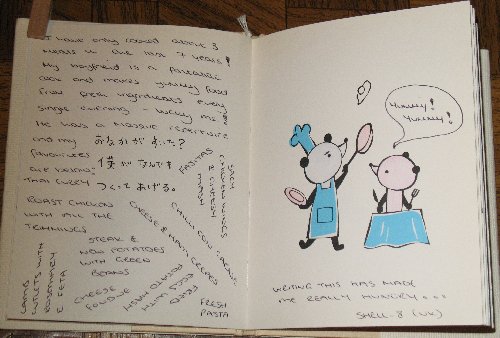 I have only cooked about 3
meals in the last 7 years!
My boyfriend is a fantastic
cook and makes yummy food
from fresh ingredients every
single evening - lucky me!
He has a massive repertoire
and my
favourites
are
thai curry
おなかがすいた?
僕がなんでも
つくってあげる。
Roast chicken
with all the
trimmings
Steak &
new potatoes
with green
beans
Fajitas
chicken wings
& cheesy
mash
Chilli con carne
Cheese & ham crepes
Lamb
cutlets with
rosemary
& feta
Cheese
fondue
Fried
eggs with
potato hash
Fresh
pasta
Yummy!
Yummy!
Writing this has made
me really hungry....
Shell-8 (UK)